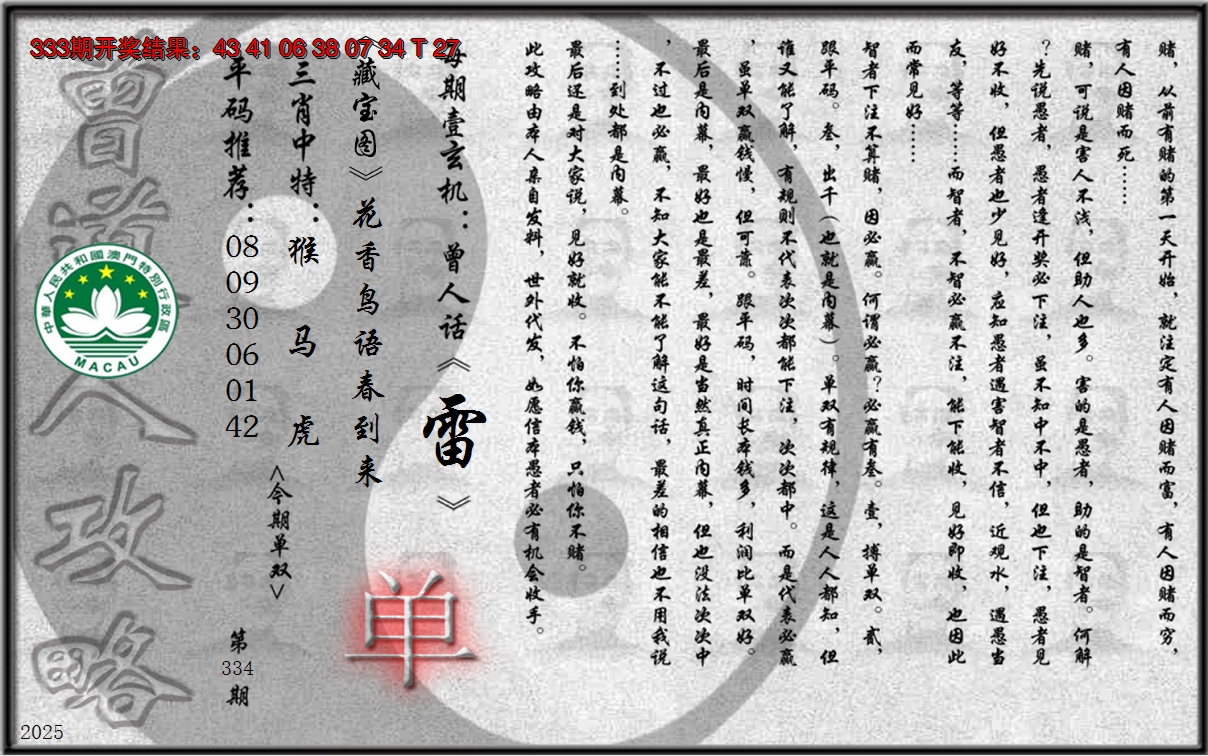 333期开奖结果：43 41 06 38 07 34 T 27
赌，从前有赌的第一天开始，就注定有人因赌而富，有人因赌而穷，
有人因赌而死……
赌，可说是害人不浅，但助人也多。害的是愚者，助的是智者。何解
？先说愚者，愚者逢开奖必下注，虽不知中不中，但也下注，愚者见
好不收，但愚者也少见好，应知愚者遇害智者不信，近观水，遇愚当
友，等等……而智者，不智必赢不注，能下能收，见好即收，也因此
而常见好……
智者下注不算赌，因必赢。何谓必赢？必赢有叁。壹，搏单双。贰，
跟平码。叁，出千（也就是内幕）。单双有规律，这是人人都知，但
谁又能了解，有规则不代表次次都能下注，次次都中。而是代表必赢
，虽单双赢钱慢，但可靠。跟平码，时间长本钱多，利润比单双好。
最后是内幕，最好也是最差，最好是当然真正内幕，但也没法次次中
，不过也必赢，不知大家能不能了解这句话，最差的相信也不用我说
……到处都是内幕。
最后还是对大家说，见好就收。不怕你赢钱，只怕你不赌。
此攻略由本人亲自发料，世外代发，如愿信本愚者必有机会收手。
每期壹玄机：曾人话《雷》
《藏宝图》花香鸟语春到来
单
三肖中特：猴 马 虎
<今期单双>
平码推荐：08 09 30 06 01 42
第334期
曾道人攻略
中華人民共和國澳門特別行政區
MACAU
2025